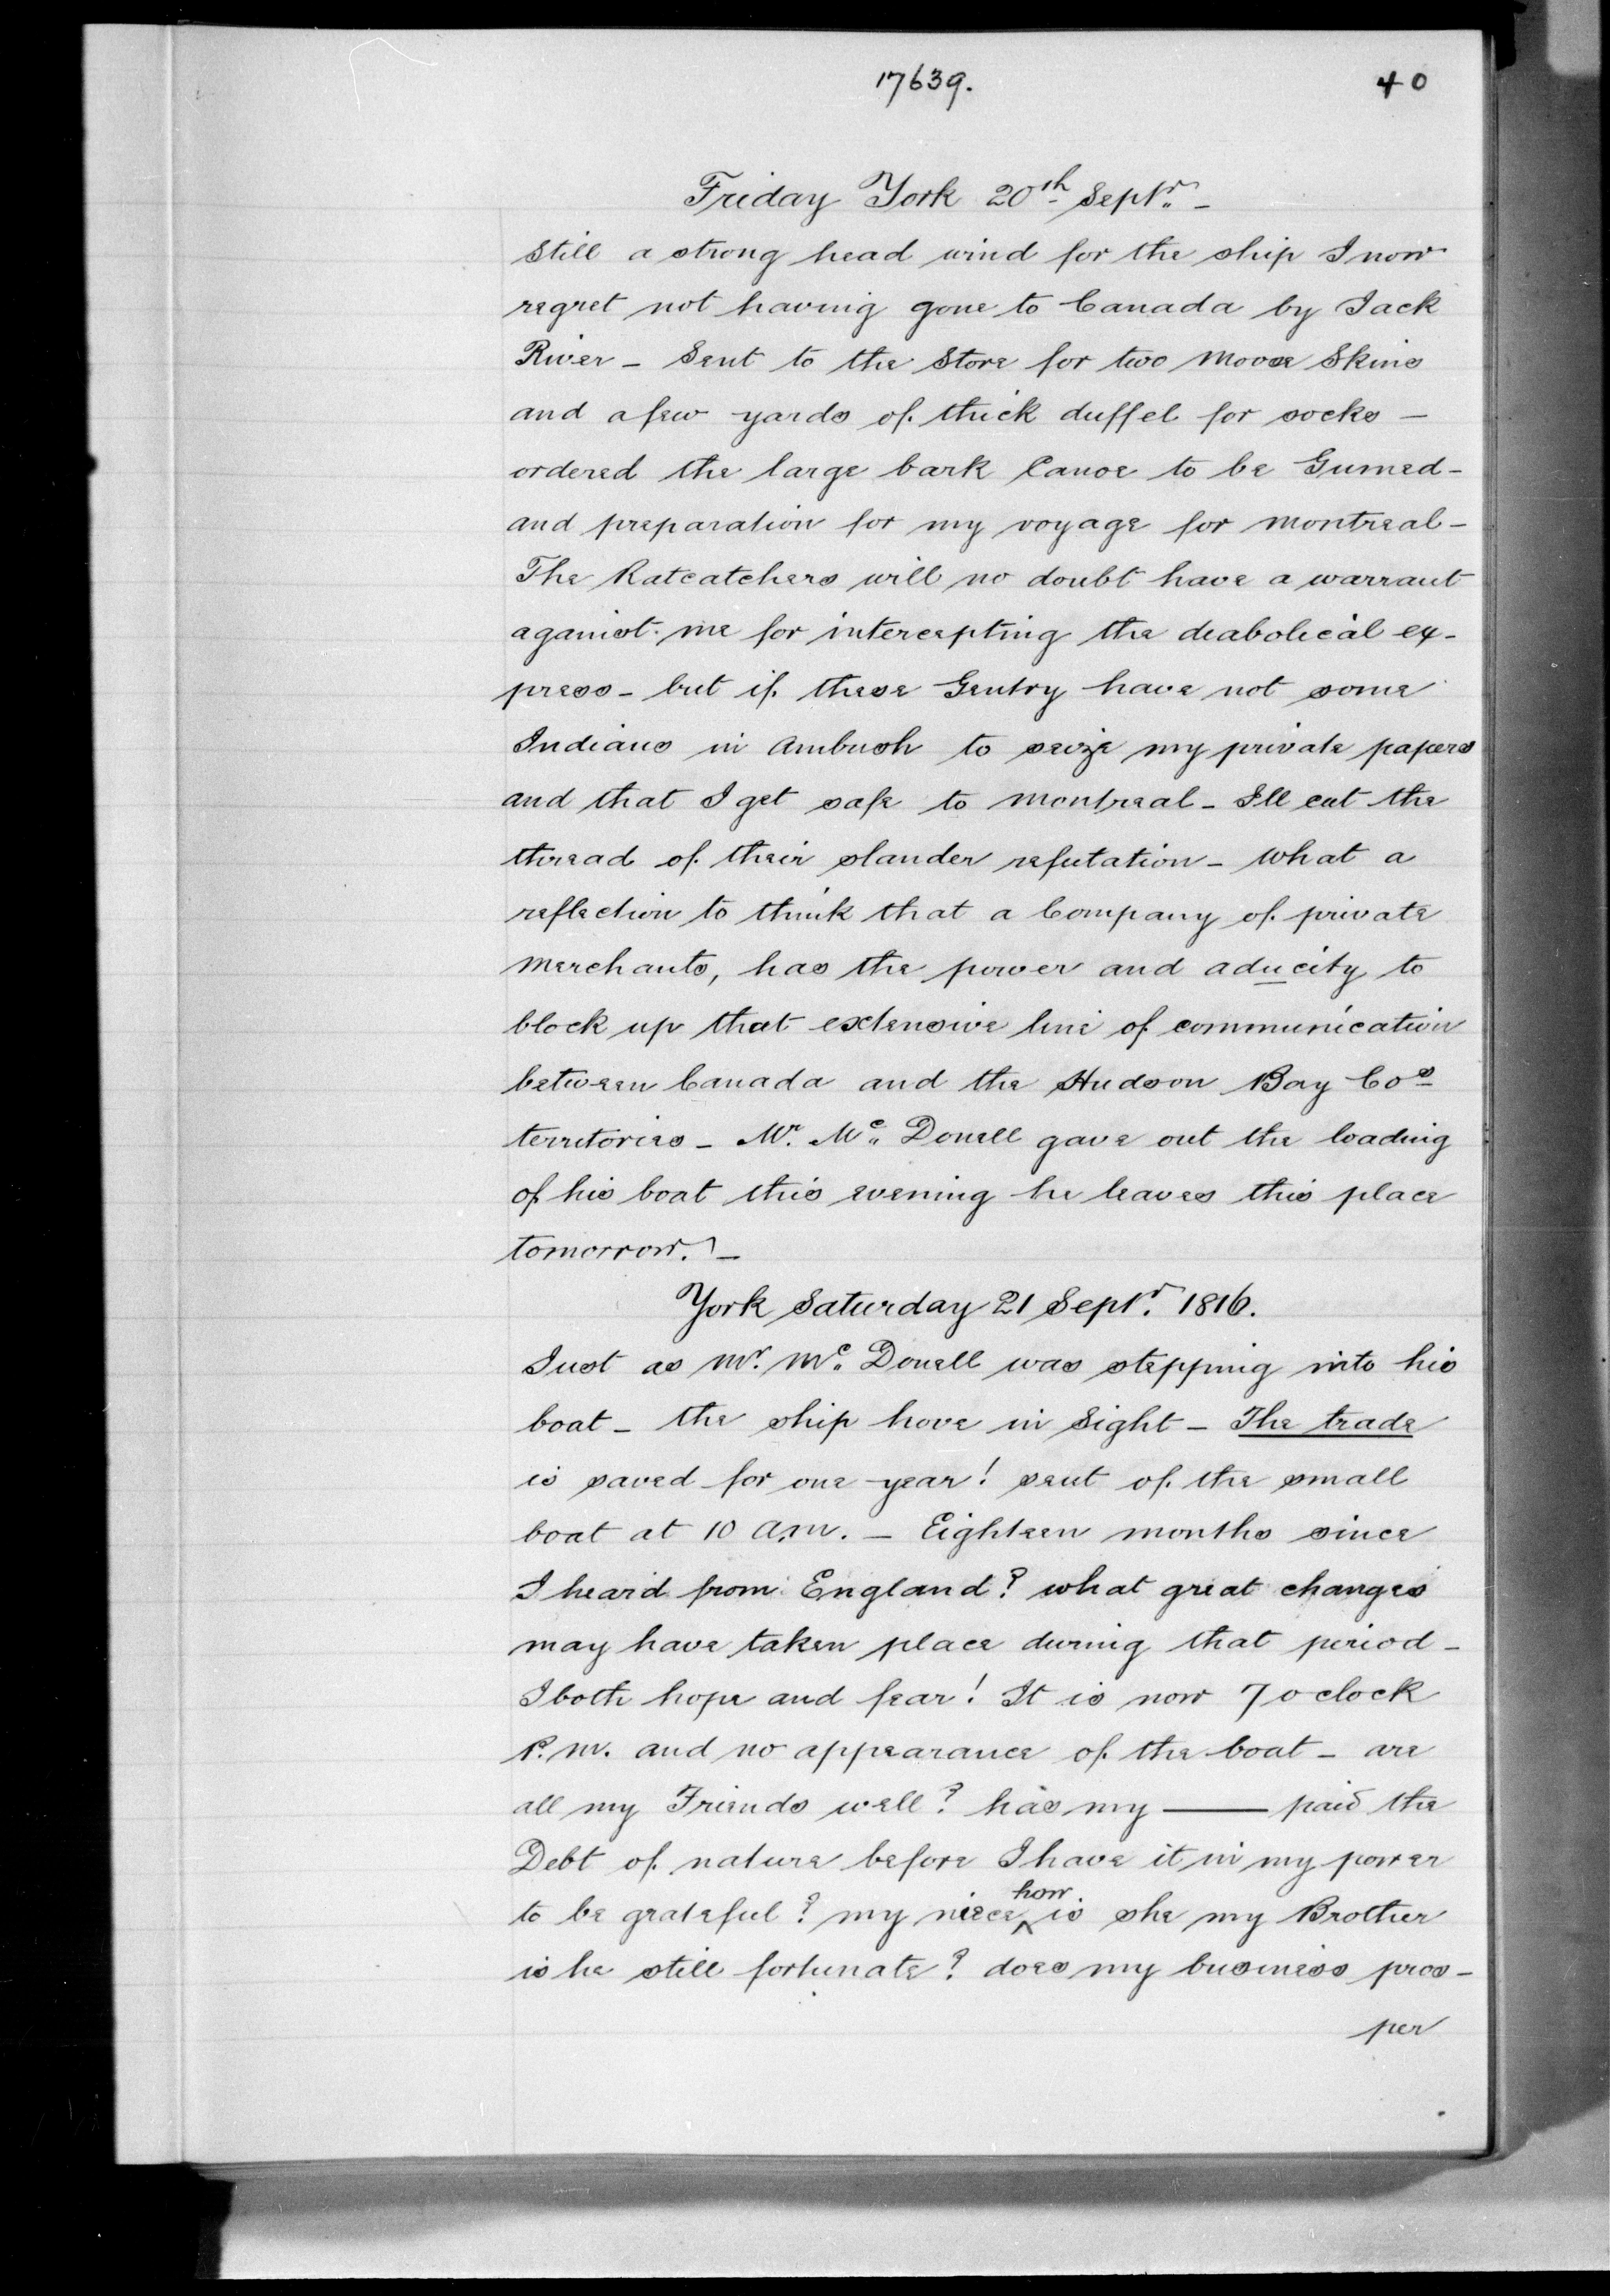 17639.
40
Friday York 20th Septr. -
Still a strong head wind for the ship I now
regret not having gone to Canada by Jack
River - Sent to the Store for two Moose Skins
and a few yards of thick duffel for socks -
ordered the large bark Canoe to be Gumed -
and preparation for my voyage for Montreal -
The Ratcatchers will no doubt have a warrant
against me for intercepting the diabolical ex-
press - but if these Gentry have not some
Indians in Ambush to seize my private papers
and that I get safe to Montreal - Ill cut the
thread of their slander refutation - What a
reflection to think that a Company of private
Merchants, has the power and aducity to
block up that extensive line of communication
between Canada and the Hudson Bay Cos
territories - Mr. Mc. Donell gave out the loading
of his boat this evening he leaves this place
tomorrow. -
York Saturday 21 Septr. 1816.
Just as Mr. Mc. Donell was stepping into his
boat - the ship hove in Sight - The trade
is saved for one year! sent of the small
boat at 10 a.m. - Eighteen months since
I heard from England? what great changes
may have taken place during that period -
I both hope and fear! It is now 7 o clock
P.M. and no appearance of the boat - are
all my Friends well? has my —— paid the
Debt of nature before I have it in my power
to be grateful? my niece how is she my Brother
is he still fortunate? does my business pros-
per